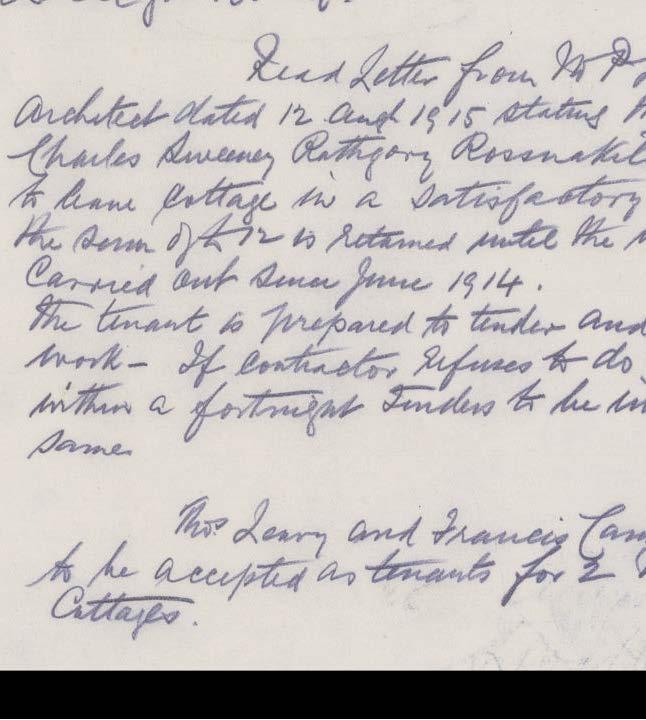 Read Letter from Mr P
Architect dated 12 Augt 1915 stating
Charles Sweeney Rathgory Rossnakil
to leave Cottage in a satisfactory
the sum of £12 is retained until the
Carried out since June 1914.
The tenant is prepared to tender and
work - If Contractor refuses to do
within a fortnight Tenders to be in
same
Thos. Leavy and Francis Cam
to be accepted as tenants for 2
Cottages.